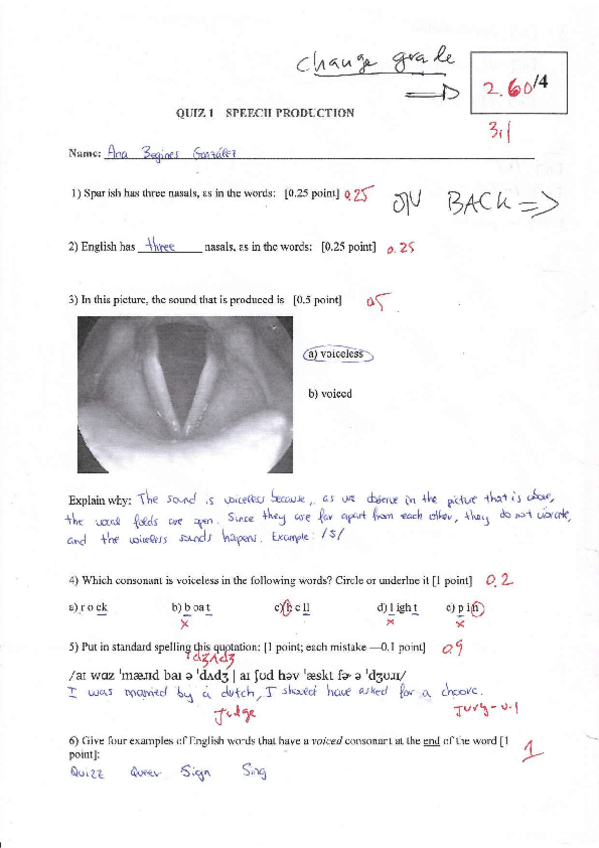 change grade
2.60/4
3,1
QUIZ 1 SPEECH PRODUCTION
Name: Ana Begines González
1) Spanish has three nasals, as in the words: [0.25 point] 0.25
ON BACK =>
2) English has three nasals, as in the words: [0.25 point] 0.25
3) In this picture, the sound that is produced is [0.5 point] 0.5
a) voiceless
b) voiced
Explain why: The sound is voiceless because, as we observe in the picture that is above,
the vocal folds are open. Since they are far apart from each other, they do not vibrate,
and the voiceless sounds happens. Example: /s/
4) Which consonant is voiceless in the following words? Circle or underline it [1 point] 0.2
a) r o ck b) b oa t c) h e ll d) l igh t e) p i n
x x x
5) Put in standard spelling this quotation: [1 point; each mistake —0.1 point] 0.9
dʒʌdʒ
/aɪ wɑz ˈmærɪd baɪ ə ˈdʌdʒ | aɪ ʃʊd həv ˈæskt fɚ ə ˈdʒʊrɪ/
I was married by a dutch, I should have asked for a
Judge Jury -0.1
6) Give four examples of English words that have a voiced consonant at the end of the word [1
point]: 1
Quizz Sign Sing